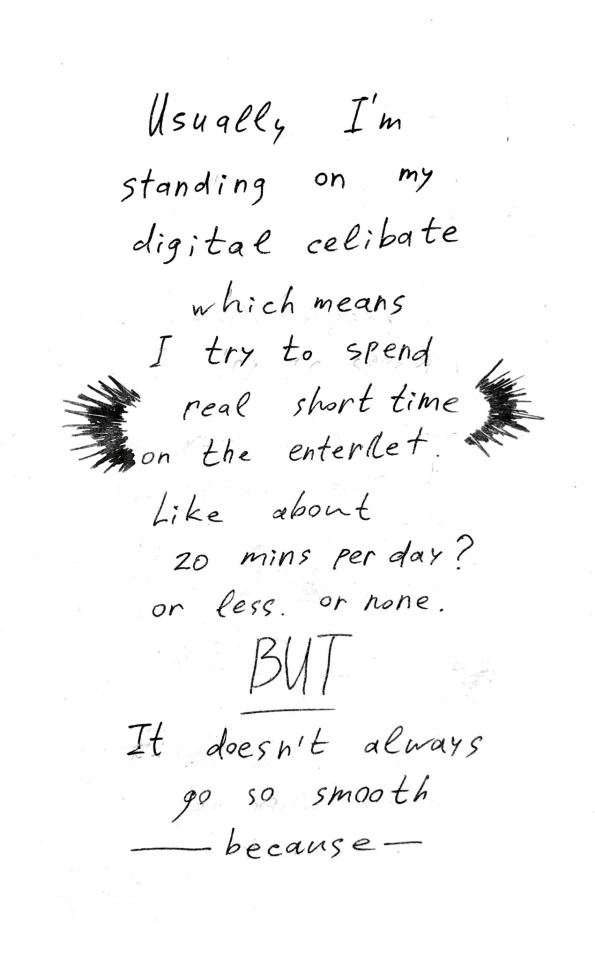 Usually I'm
standing on my
digital celibate
which means
I try to spend
real short time
on the enterNet.
Like about
20 mins per day?
or less. or none.
BUT
It doesn't always
go so smooth
— because —